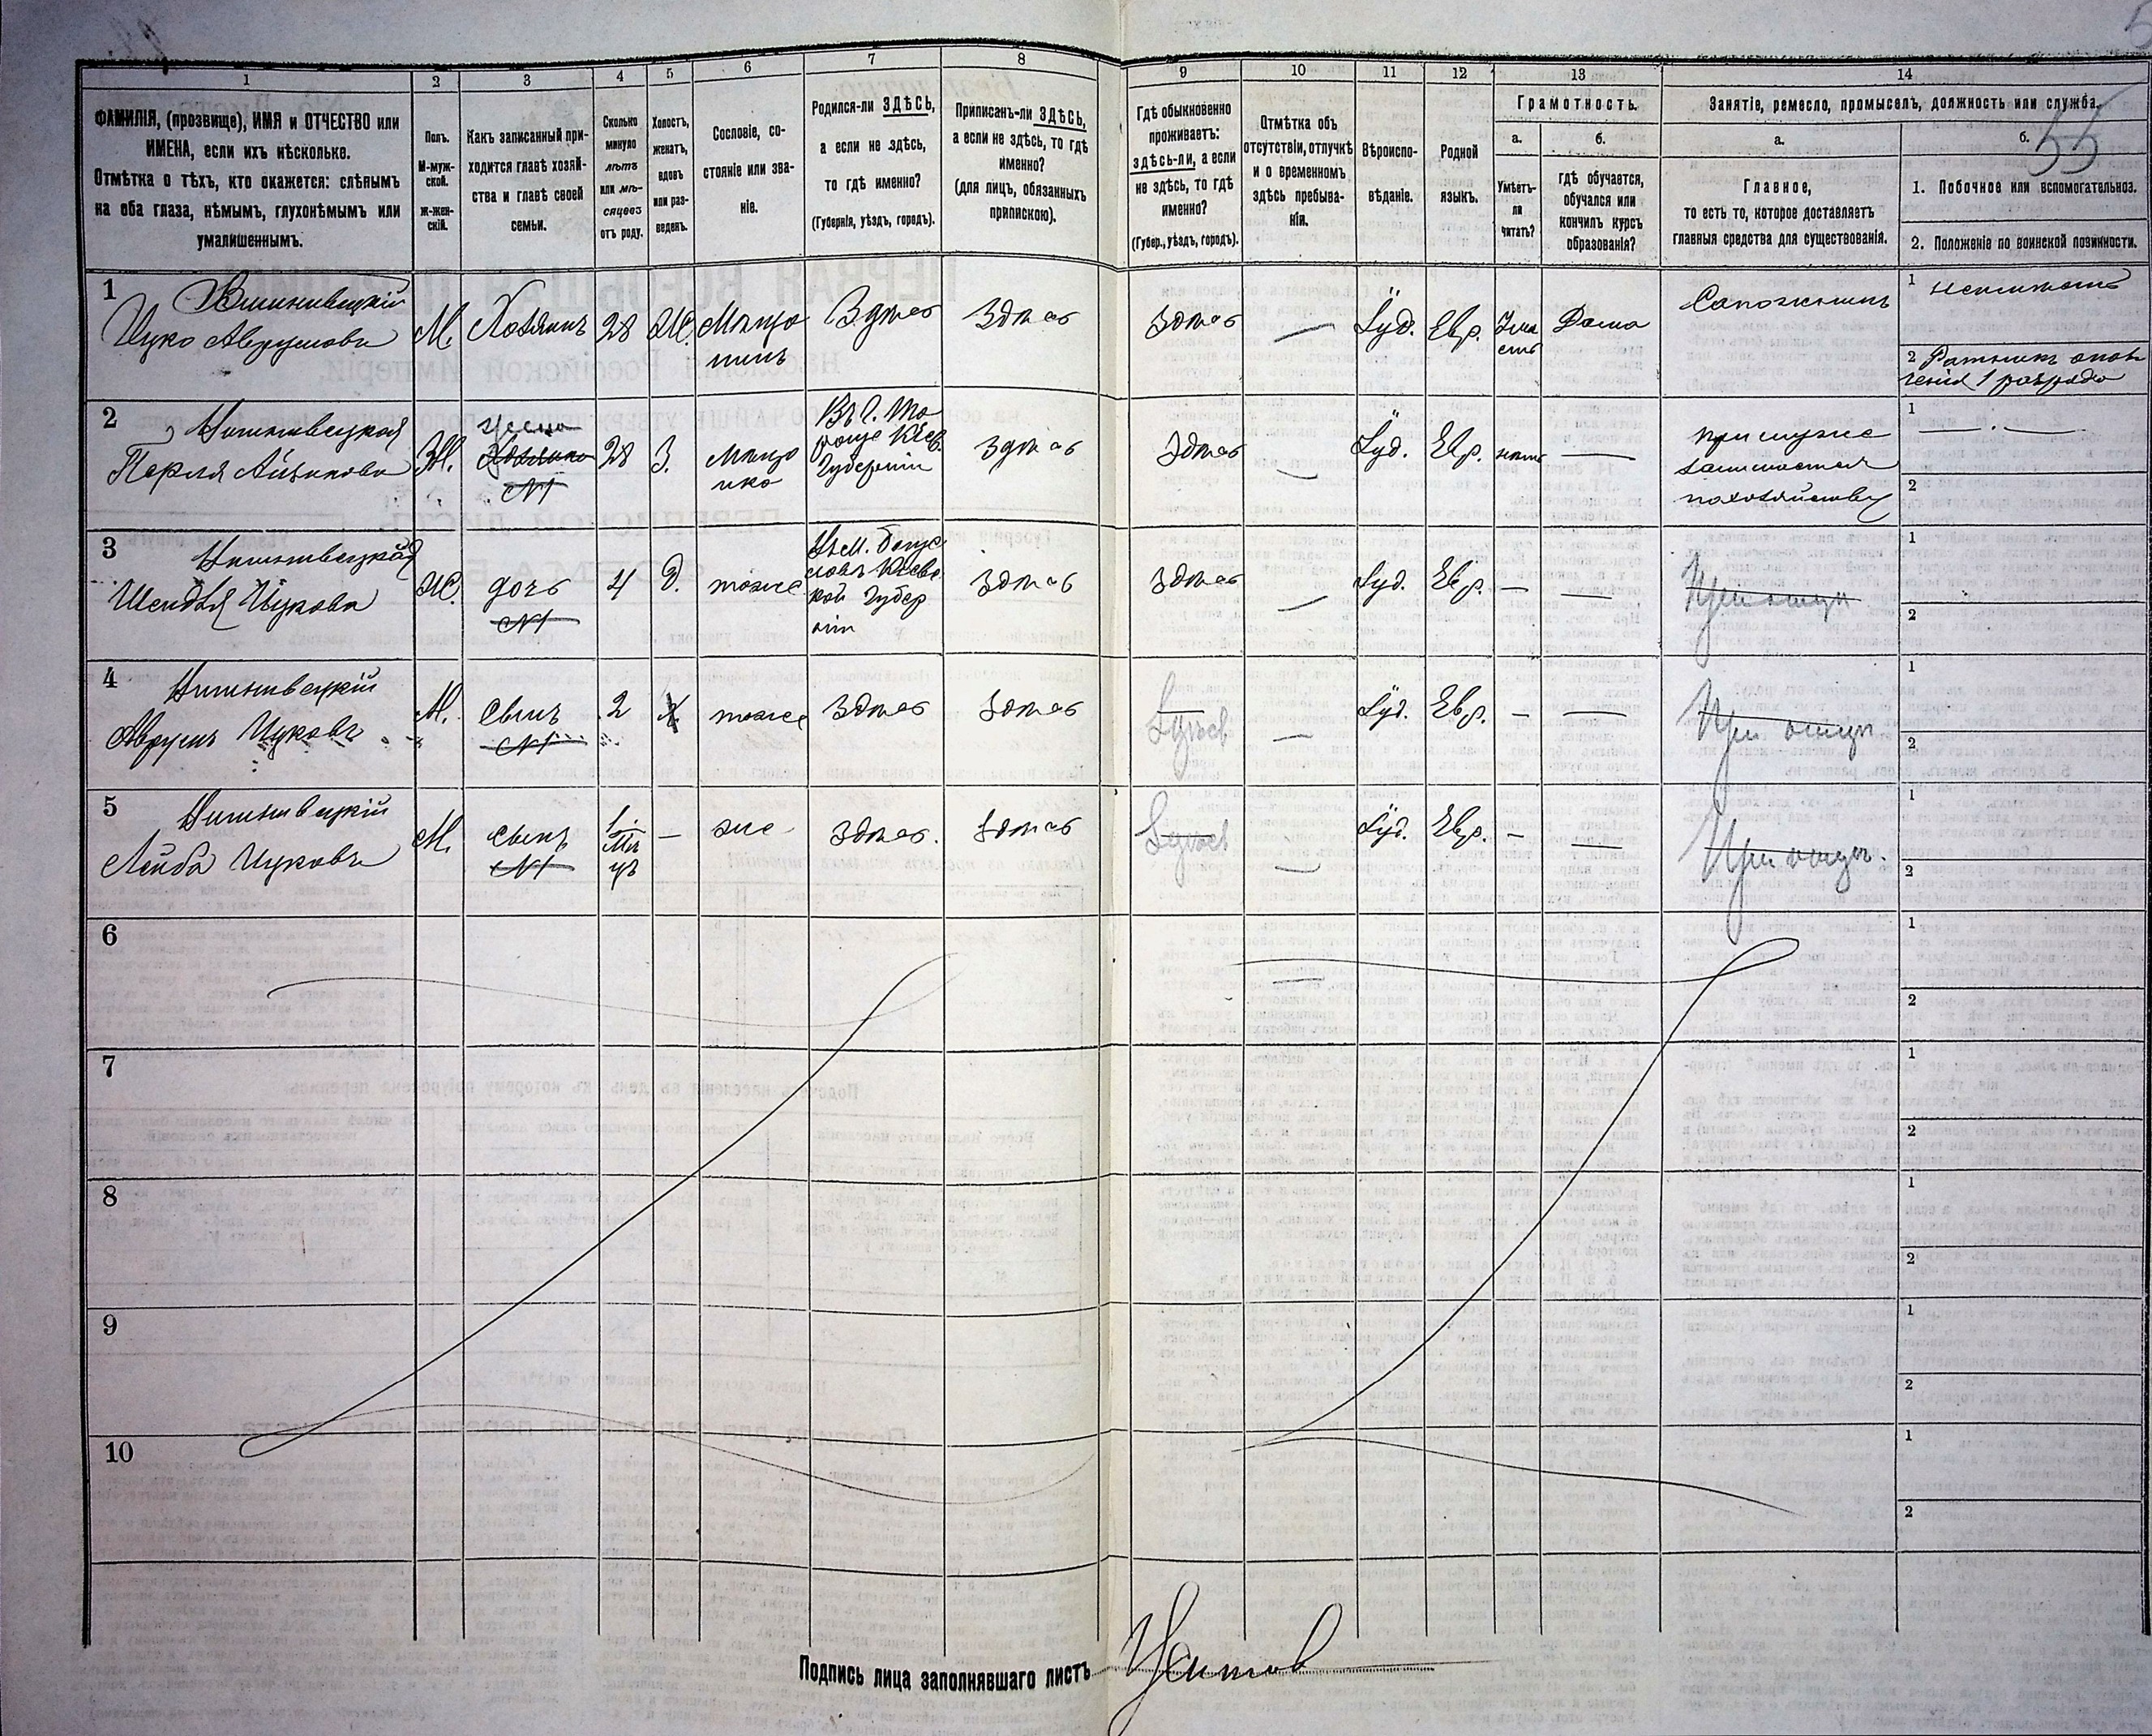 1
2
3
4
5
6
7
8
9
10
11
12
13
14
ФАМИЛІЯ, (прозвище), ИМЯ и ОТЧЕСТВО или
ИМЕНА, если ихъ нѣсколько.
Отмѣтка о тѣхъ, кто окажется: слѣпымъ
на оба глаза, нѣмымъ, глухонѣмымъ или
умалишеннымъ.
Полъ.
М-муж-
ской.
Ж-жен-
скій.
Какъ записанный при-
ходится главѣ хозяй-
ства и главѣ своей
семьи.
Сколько
минуло
лѣтъ
или мѣ-
сяцевъ
отъ роду.
Холостъ,
женатъ,
вдовъ
или раз-
веденъ.
Сословіе, со-
стояніе или зва-
ніе.
Родился-ли ЗДѢСЬ,
а если не здѣсь,
то гдѣ именно?
(Губернія, уѣздъ, городъ).
Приписанъ-ли ЗДѢСЬ,
а если не здѣсь, то гдѣ
именно?
(для лицъ, обязанныхъ
припискою).
Гдѣ обыкновенно
проживаетъ:
здѣсь-ли, а если
не здѣсь, то гдѣ
именно?
(Губер., уѣздъ, городъ).
Отмѣтка объ
отсутствіи, отлучкѣ
и о временномъ
здѣсь пребыва-
ніи.
Вѣроиспо-
вѣданіе.
Родной
языкъ.
Грамотность.
а.
Умѣетъ-
ли
читать?
б.
гдѣ обучается,
обучался или
кончилъ курсъ
образованія?
Занятіе, ремесло, промыселъ, должность или служба.
а.
Главное,
то есть то, которое доставляетъ
главныя средства для существованія.
б.
55
1. Побочное или вспомогательное.
2. Положеніе по воинской повинности.
1
Ицко Аврумовъ
М.
Хозяинъ
28
Ж.
Мѣща
нинъ
Здѣсь
Здѣсь
Здѣсь
—
Іуд.
Евр.
Дома
Сапожникъ
1
2 Ратникъ опол
ченія 1 разряда
2
Перля Айзикова
Ж.
жена
№1
28
З.
мѣща
нка
Кіев.
Губерніи
Здѣсь
Здѣсь
—
Іуд.
Евр.
нѣтъ
—
при мужѣ
занимается
по хозяйству
1 — . —
2
3
Шендля Ицкова
Ж.
дочь
№1
4
Д.
тоже
Въ м. Богус
лавѣ Кіевс
кой Губер
ніи
Здѣсь
Здѣсь
—
Іуд.
Евр.
—
—
При отцѣ
1
2
4
Аврумъ Ицковъ
М.
сынъ
№1
2
Х
тоже
Здѣсь
Здѣсь
—
Іуд.
Евр.
—
—
При отцѣ
1
2
5
Лейба Ицковъ
М.
сынъ
№1
1
Мѣ
цъ
—
же
Здѣсь.
Здѣсь
—
Іуд.
Евр.
—
—
При отцѣ.
1
2
6
—
1
2
7
1
2
8
1
2
9
1
2
10
1
2
Подпись лица заполнявшаго листъ